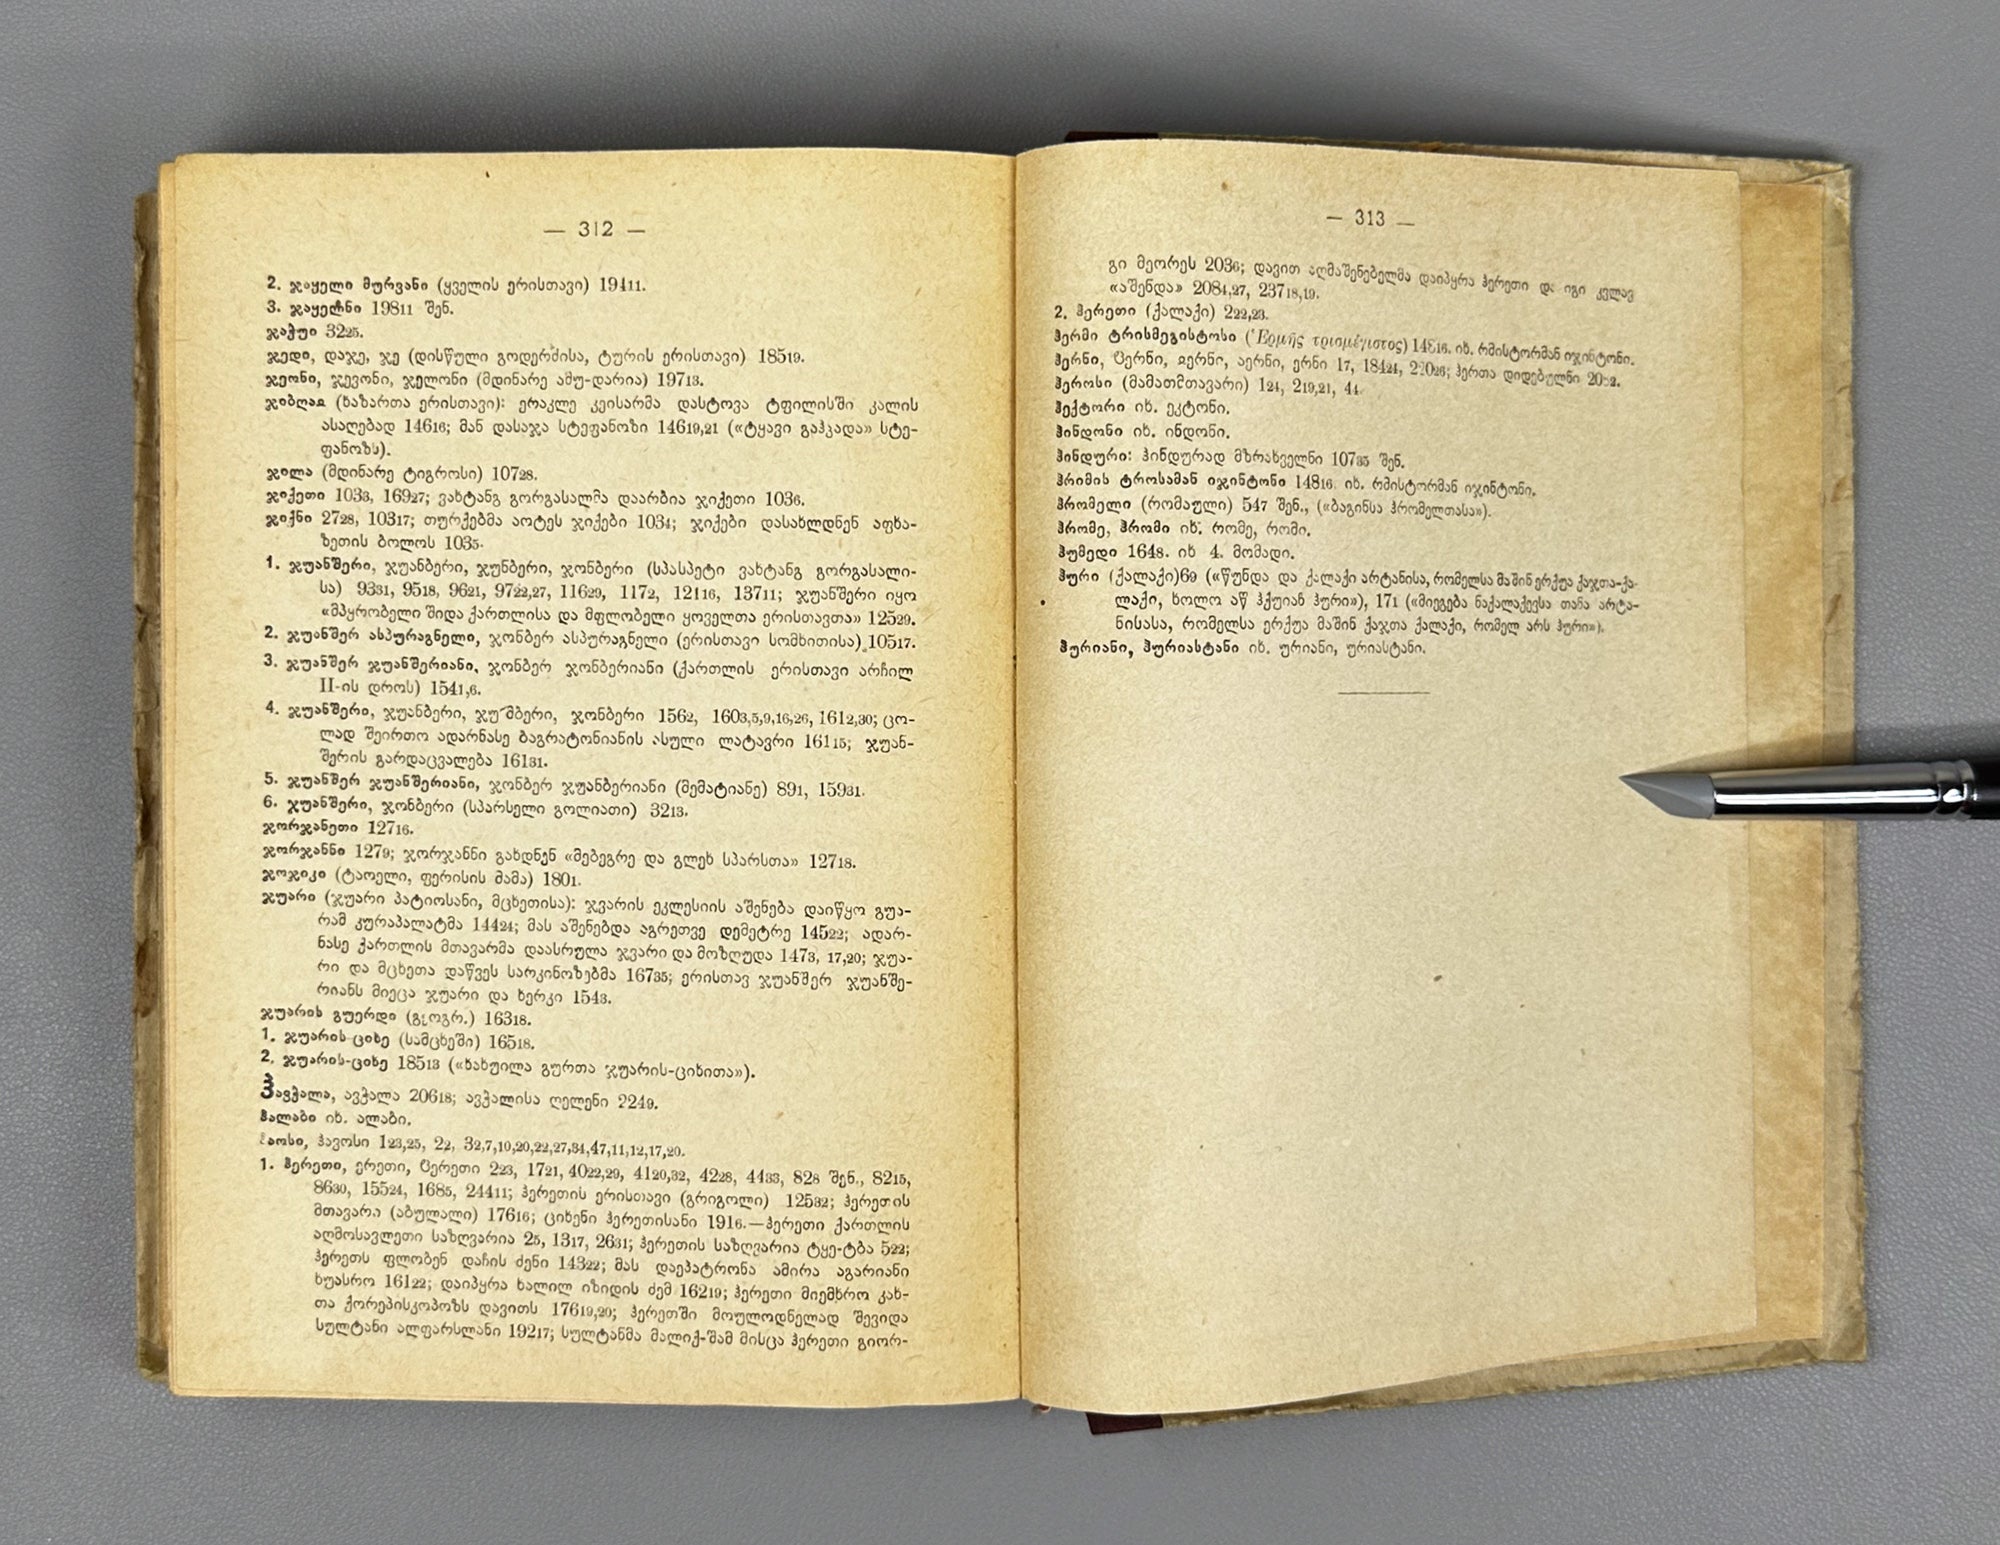 — 312 —
2. ჯაყელი მურვანი (ყველის ერისთავი) 19411.
3. ჯაყელნი 19811 შენ.
ჯაჭუი 3225.
ჯედი, დაჯე, ჯე (დისწული გოდერძისა, ტურის ერისთავი) 18519.
ჯეონი, ჯევონი, ჯელონი (მდინარე ამუ-დარია) 19713.
ჯიბღაჲ (ხაზართა ერისთავი): ერაკლე კეისარმა დასტოვა ტფილისში კალის
ასაღებად 14616; მან დასაჯა სტეფანოზი 14619,21 («ტყავი გაჰკადა» სტე-
ფანოზს).
ჯილა (მდინარე ტიგროსი) 10728.
ჯიქეთი 1033, 16927; ვახტანგ გორგასალმა დაარბია ჯიქეთი 1036.
ჯიქნი 2728, 10317; თურქებმა აოტეს ჯიქები 1034; ჯიქები დასახლდნენ აფხა-
ზეთის ბოლოს 1035.
1. ჯუანშერი, ჯუანბერი, ჯუნბერი, ჯონბერი (სპასპეტი ვახტანგ გორგასალი-
სა) 9331, 9518, 9621, 9722,27, 11629, 1172, 12116, 13711; ჯუანშერი იყო
«მპყრობელი შიდა ქართლისა და მფლობელი ყოველთა ერისთავთა» 12529.
2. ჯუანშერ ასპურაგნელი, ჯონბერ ასპურაგნელი (ერისთავი სომხითისა) 10517.
3. ჯუანშერ ჯუანშერიანი, ჯონბერ ჯონბერიანი (ქართლის ერისთავი არჩილ
II-ის დროს) 1541,6.
4. ჯუანშერი, ჯუანბერი, ჯუმბერი, ჯონბერი 1562, 1603,5,9,16,26, 1612,30; ცო-
ლად შეირთო ადარნასე ბაგრატონიანის ასული ლატავრი 16115; ჯუან-
შერის გარდაცვალება 16131.
5. ჯუანშერ ჯუანშერიანი, ჯონბერ ჯუანბერიანი (მემატიანე) 891, 15931.
6. ჯუანშერი, ჯონბერი (სპარსელი გოლიათი) 3213.
ჯორჯანეთი 12716.
ჯორჯანნი 1279; ჯორჯანნი გახდნენ «მებეგრე და გლეხ სპარსთა» 12718.
ჯოჯიკი (ტაოელი, ფერისის მამა) 1801.
ჯუარი (ჯუარი პატიოსანი, მცხეთისა): ჯვარის ეკლესიის აშენება დაიწყო გუა-
რამ კურაპალატმა 14424; მას აშენებდა აგრეთვე დემეტრე 14522; ადარ-
ნასე ქართლის მთავარმა დაასრულა ჯვარი და მოზღუდა 1473, 17,20; ჯუა-
რი და მცხეთა დაწვეს სარკინოზებმა 16735; ერისთავ ჯუანშერ ჯუანშე-
რიანს მიეცა ჯუარი და ხერკი 1543.
ჯუარის გუერდი (გეოგრ.) 16318.
1. ჯუარის-ციხე (სამცხეში) 16518.
2. ჯუარის-ციხე 18513 («ხახუილა გურთა ჯუარის-ციხითა»).
ჰავჭალა, ავჭალა 20618; ავჭალისა ღელენი 2249.
ჰალაბი იხ. ალაბი.
ჰაოსი, ჰავოსი 123,25, 22, 32,7,10,20,22,27,34,47,11,12,17,20.
1. ჰერეთი, ერეთი, ჱერეთი 223, 1721, 4022,29, 4120,32, 4228, 4433, 828 შენ., 8215,
8630, 15524, 1685, 24411; ჰერეთის ერისთავი (გრიგოლი) 12532; ჰერეთის
მთავარი (აბულალი) 17616; ციხენი ჰერეთისანი 1916.—ჰერეთი ქართლის
აღმოსავლეთი საზღვარია 25, 1317, 2631; ჰერეთის საზღვარია ტყე-ტბა 522;
ჰერეთს ფლობენ დაჩის ძენი 14322; მას დაეპატრონა ამირა აგარიანი
ხუასრო 16122; დაიპყრა ხალილ იზიდის ძემ 16219; ჰერეთი მიემხრო კახ-
თა ქორეპისკოპოზს დავითს 17619,20; ჰერეთში მოულოდნელად შევიდა
სულტანი ალფარსლანი 19217; სულტანმა მალიქ-შამ მისცა ჰერეთი გიორ-
— 313 —
გი მეორეს 2036; დავით აღმაშენებელმა დაიპყრა ჰერეთი და იგი კვლავ
«აშენდა» 2084,27, 23718,19.
2. ჰერეთი (ქალაქი) 222,23.
ჰერმი ტრისმეგისტოსი (Ἑρμῆς τρισμέγιστος) იხ. რმისტორმან იჯინტონი.
ჰერნი, ჱერნი, ჲერნი, აერნი, ერნი 17, 18424, ჰერთა დიდებულნი
ჰეროსი (მამათმთავარი) 124, 219,21, 44.
ჰექტორი იხ. ეკტონი.
ჰინდონი იხ. ინდონი.
ჰინდური: ჰინდურად მზრახველნი 10735 შენ.
ჰრიმის ტროსამან იჯინტონი 14816 იხ. რმისტორმან იჯინტონი.
ჰრომელი (რომაული) 547 შენ., («ბაგინსა ჰრომელთასა»).
ჰრომე, ჰრომი იხ. რომე, რომი.
ჰუმედი 1648. იხ 4. მომადი.
ჰური (ქალაქი)69 («წუნდა და ქალაქი არტანისა, რომელსა მაშინ ერქუა ქაჯთა-ქა-
ლაქი, ხოლო აწ ჰქუიან ჰური»), 171 («მიეგება ნაქალაქევსა თანა არტა-
ნისასა, რომელსა ერქუა მაშინ ქაჯთა ქალაქი, რომელ არს ჰური»).
ჰურიანი, ჰურიასტანი იხ. ურიანი, ურიასტანი.